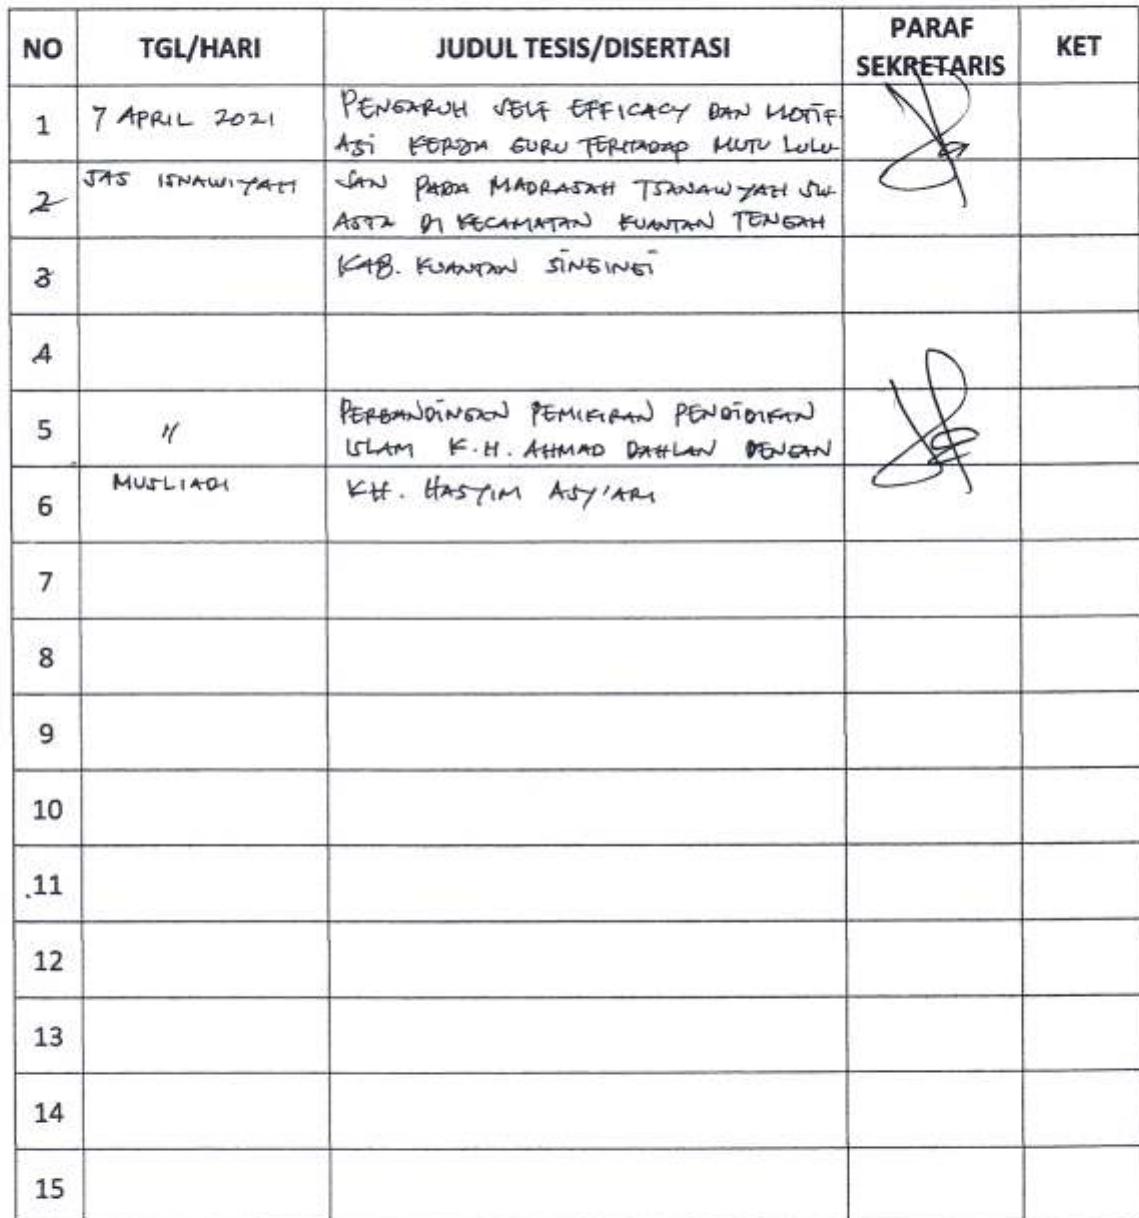 NO TGL/HARI JUDUL TESIS/DISERTASI PARAF SEKRETARIS KET
1 7 APRIL 2021 PENGARUH SELF EFFICACY DAN MOTIF-
ASI KERJA GURU TERHADAP MUTU LULU-
2 JAS ISNAWIYAH SAN PADA MADRASAH TSANAWIYAH SW-
ASTA DI KECAMATAN KUANTAN TENGAH
3 KAB. KUANTAN SINGINGI
4
5 " PERBANDINGAN PEMIKIRAN PENDIDIKAN
ISLAM K.H. AHMAD DAHLAN DENGAN
6 MUSLIADI KH. HASYIM ASY'ARI
7
8
9
10
11
12
13
14
15